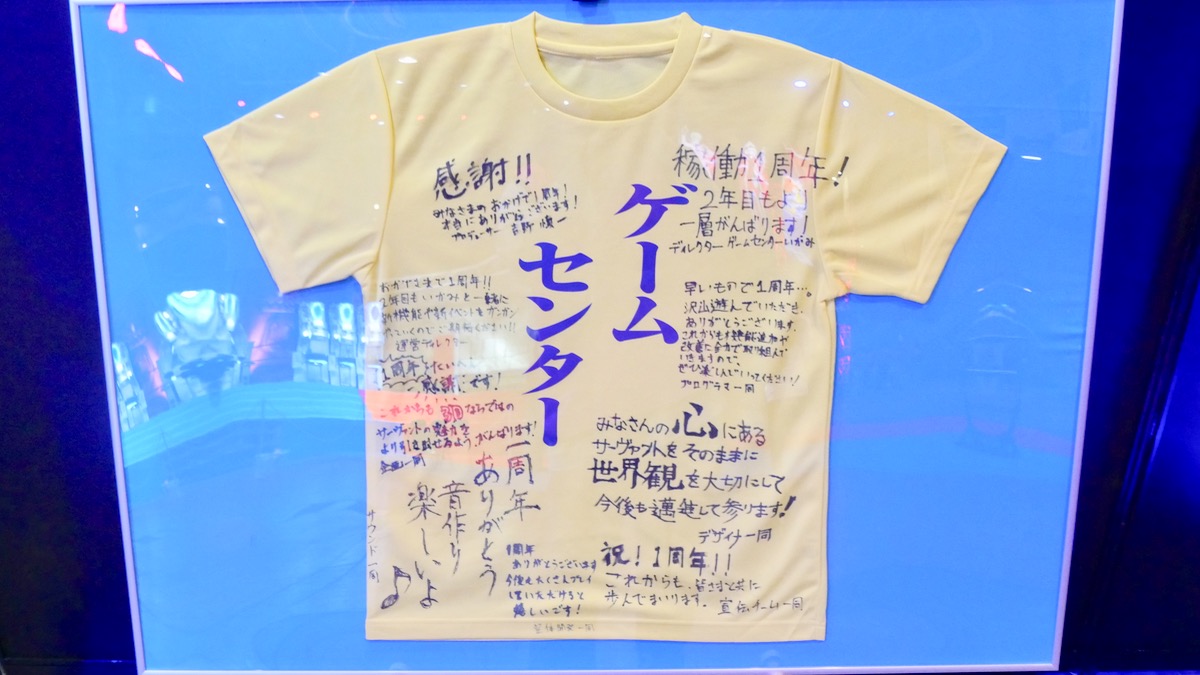 ゲーム
センター
稼働1周年!
2年目もより
一層がんばります!
ディレクター ゲームセンターいがみ
早いもので1周年…。
沢山遊んでいただき、
ありがとうございます。
これからも機能追加や
改善に全力で取り組んで
いきますので、
ぜひ楽しんでいってください!
プログラマー同
みなさんの心にある
サーヴァントをそのままに
世界観を大切にして
今後も邁進して参ります!
デザイナー同
祝!1周年!!
これからも、皆さまと共に
歩んでまいります。
宣伝チーム一同
感謝!!
みなさまのおかげで1周年!
本当にありがとうございます!
プロデューサー
おかげさまで1周年!!
2年目もいがみと一緒に
新機能や新イベントをガンガン
運営ディレクター
1周年
感謝です!
これからも3Dならではの
サーヴァントの魅力を
がんばります!
企画一同
一周年
ありがとう
音作り
楽しいよ
サウンド一同
1周年
ありがとうございます
今後もたくさんプレイ
していただけると
嬉しいです!